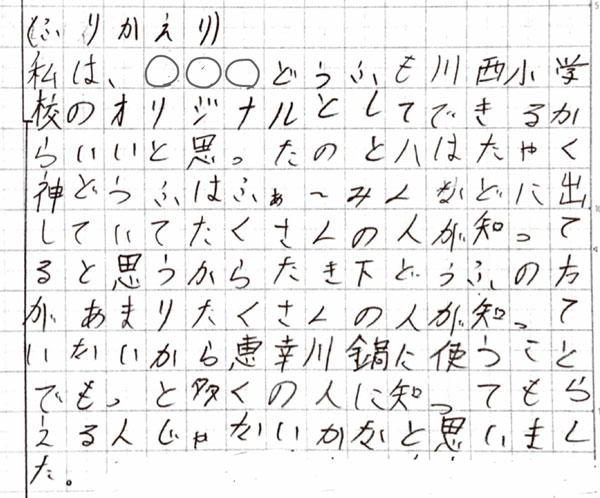 (ふりかえり)
私は、○○○どうふも川西小学
校のオリジナルとしてできるか
らいいと思ったのと八はたやく
神どうふはふぁ〜みんなどに出
していてたくさんの人が知って
ると思うからたき下どうふの方
があまりたくさんの人が知って
いないから恵幸川鍋に使うこと
でもっと多くの人に知ってもら
えるんじゃないかなと思いまし
た。